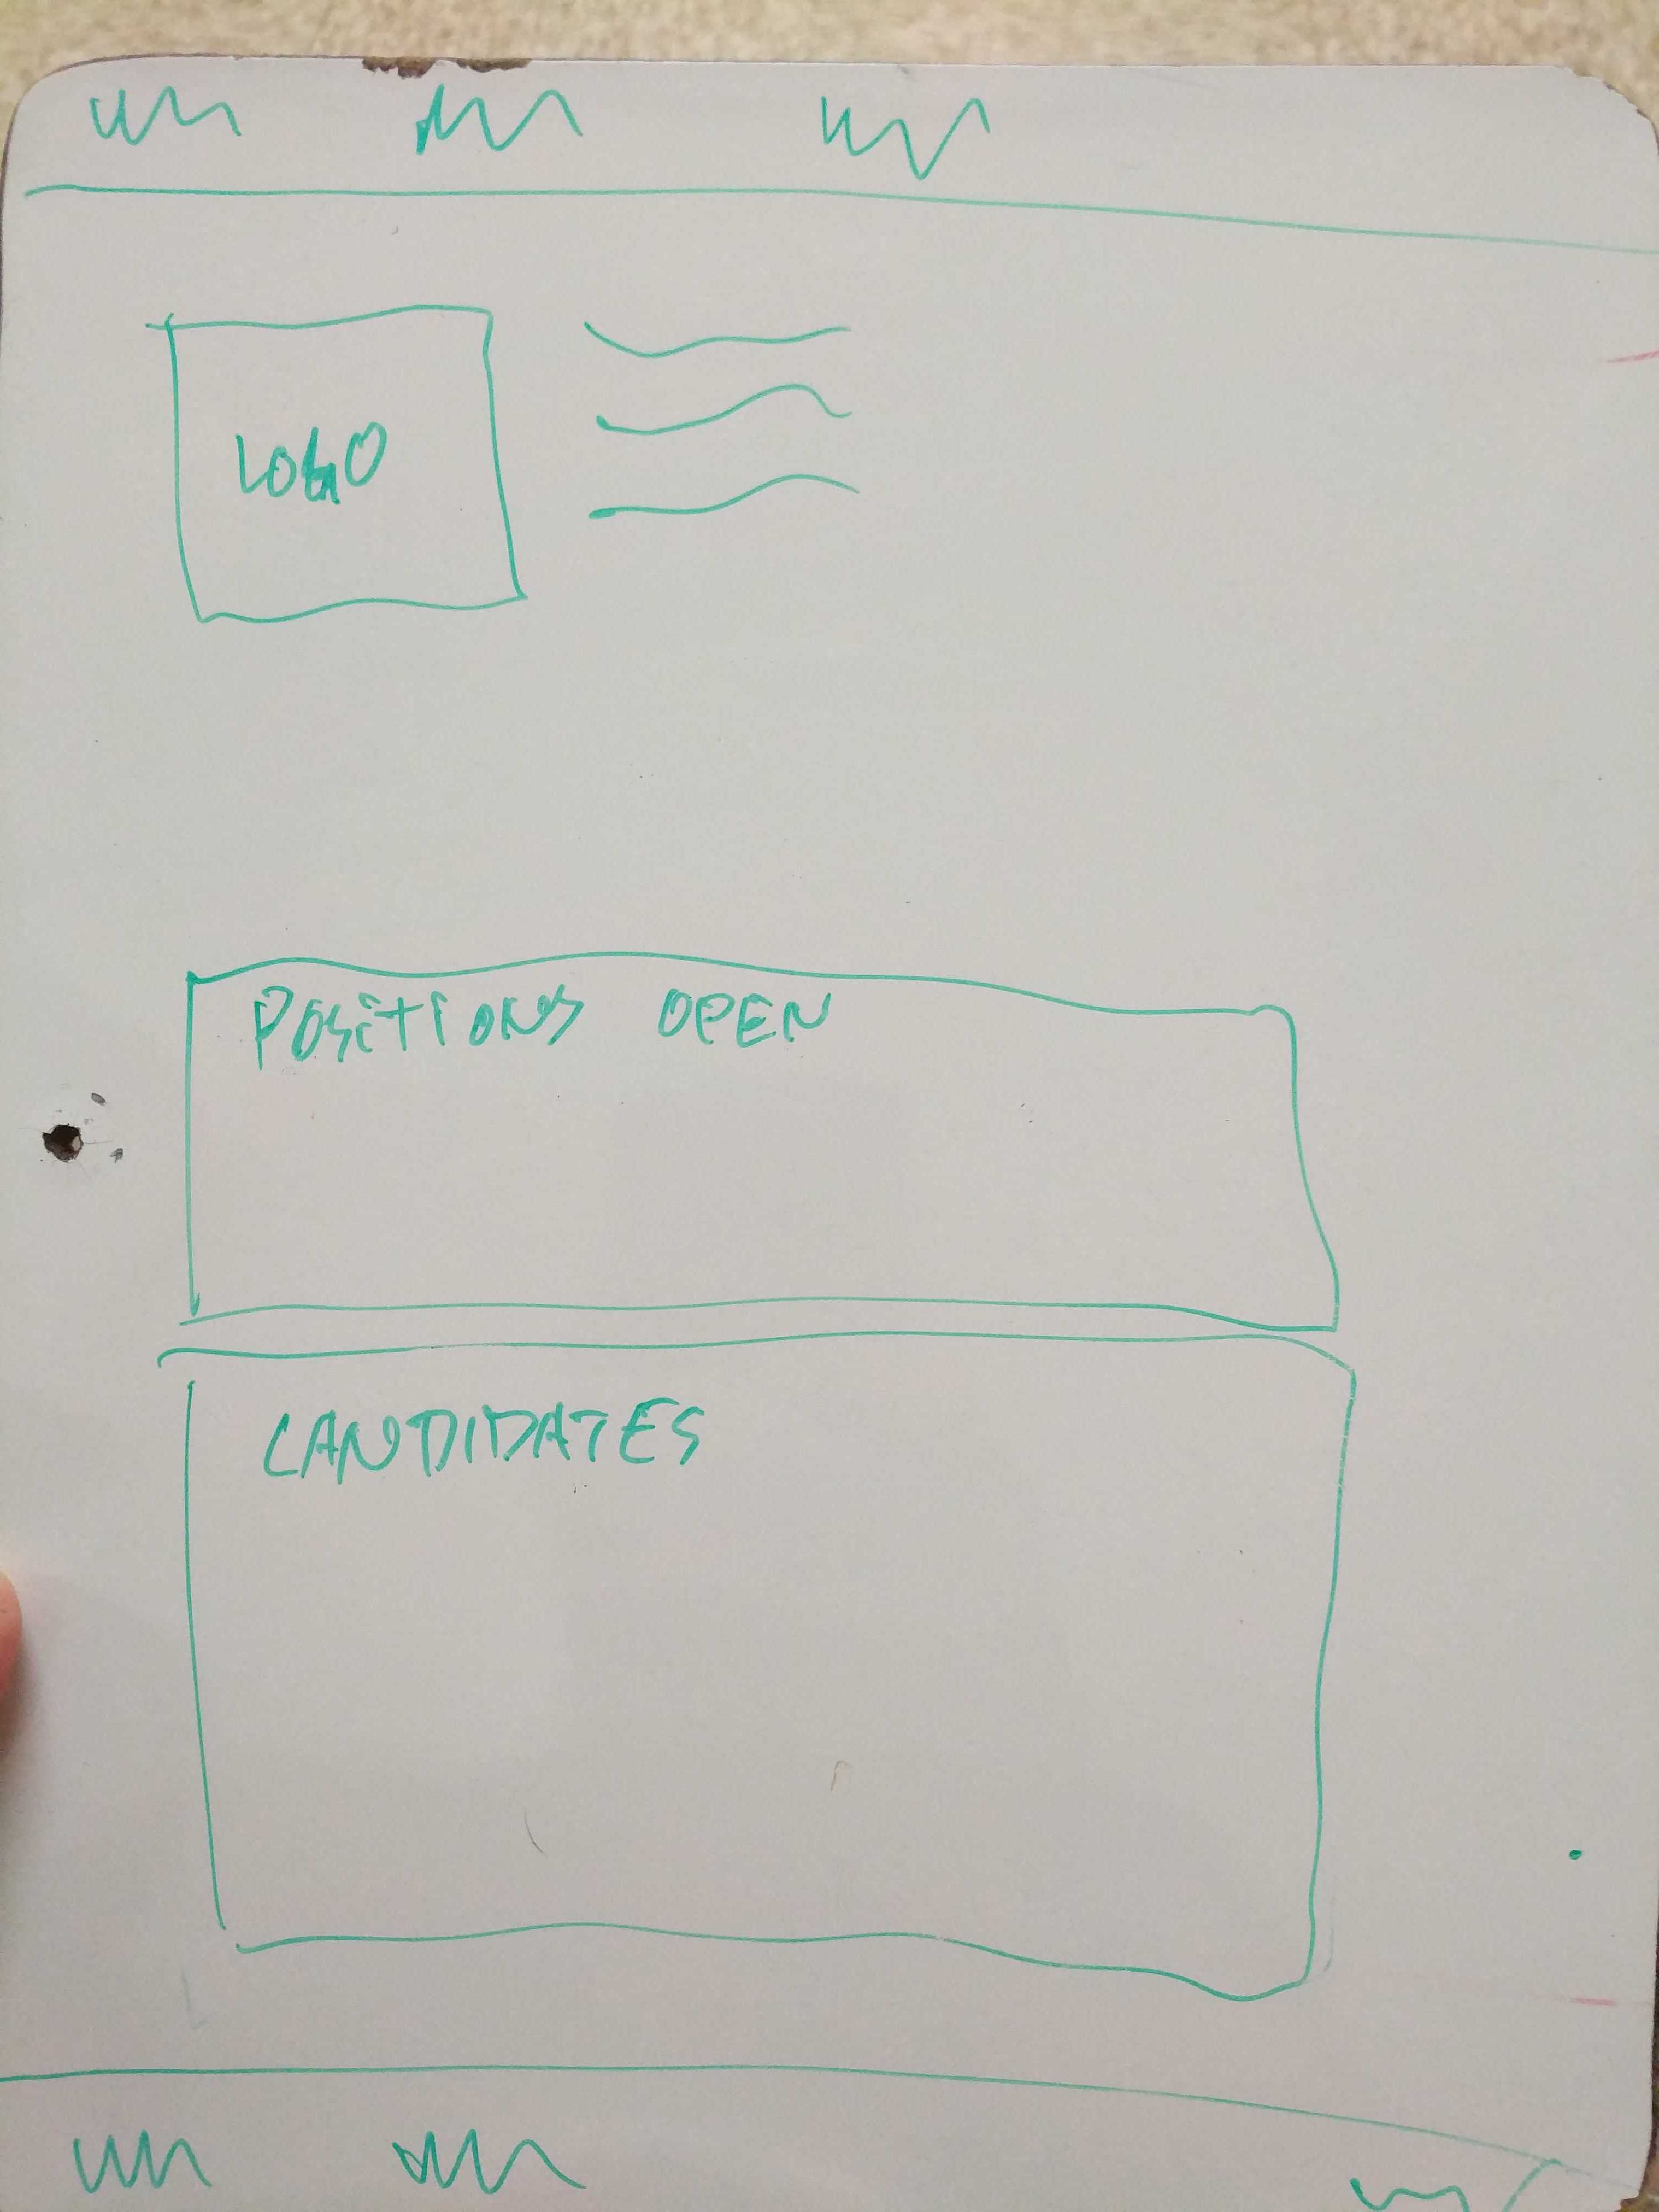 LOGO
POSITIONS OPEN
CANDIDATES